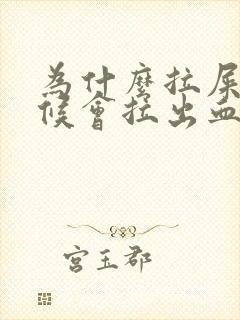 為什麼拉屎
候會拉出血
宮玉郡